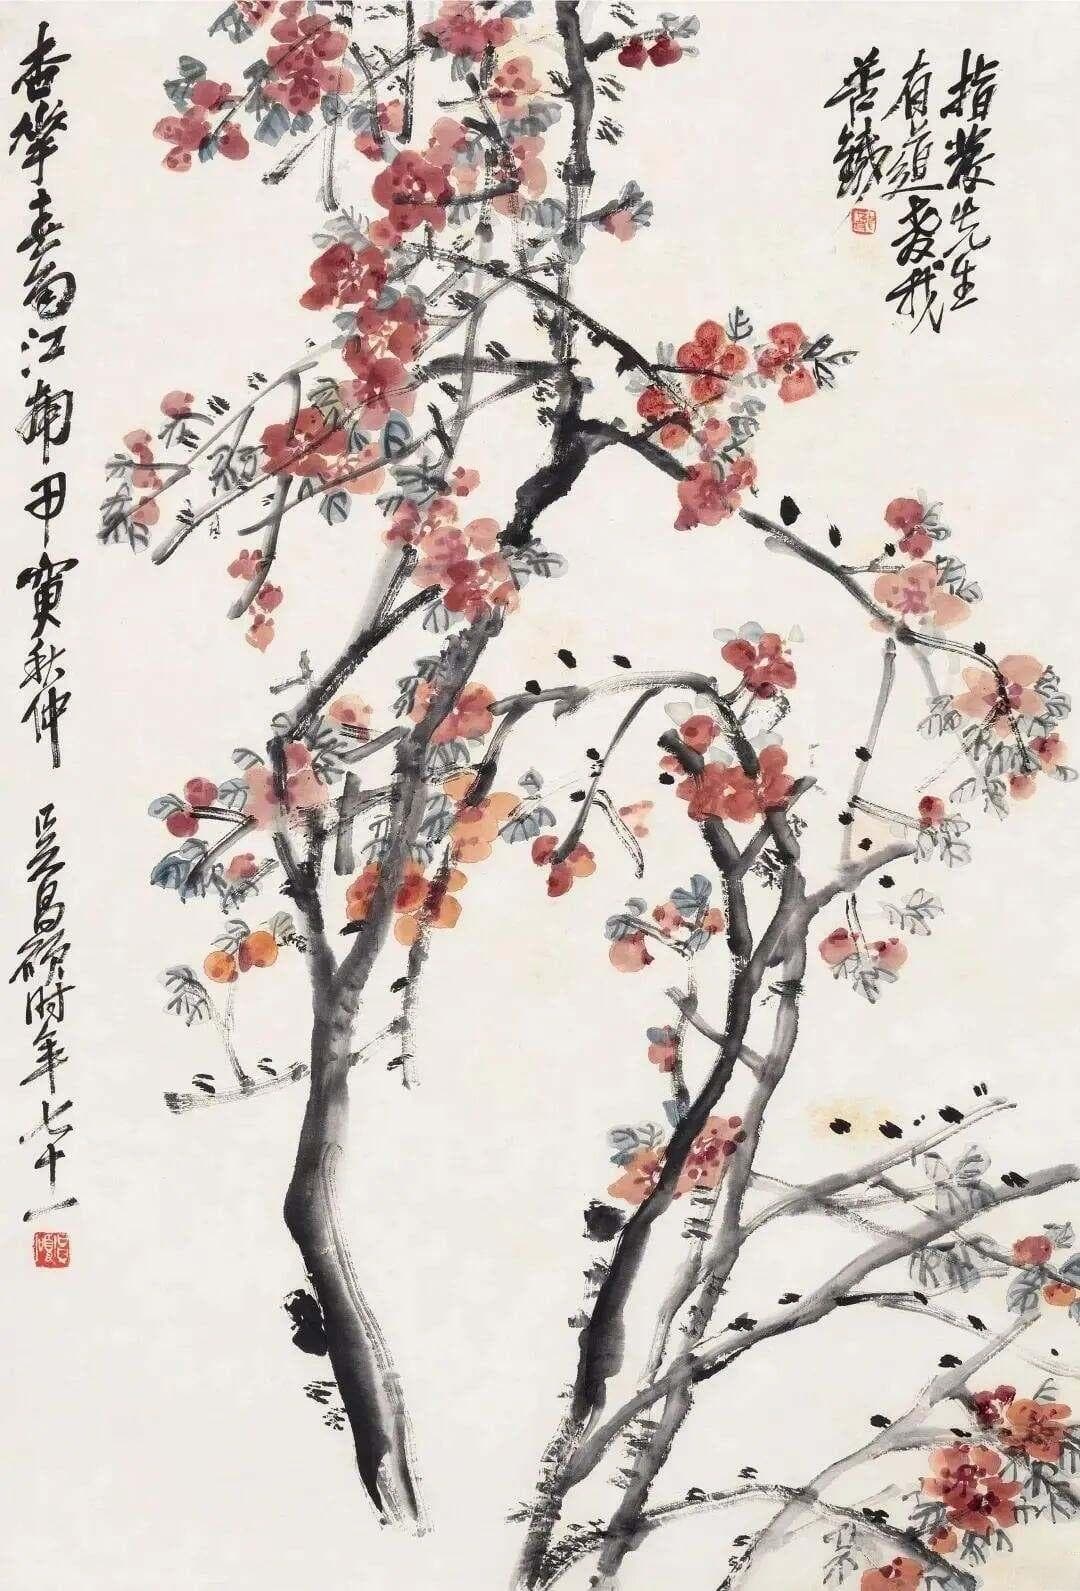 先生
有道教我
苦鐵
杏華春雨江南甲寅秋仲
吳昌碩时年七十一